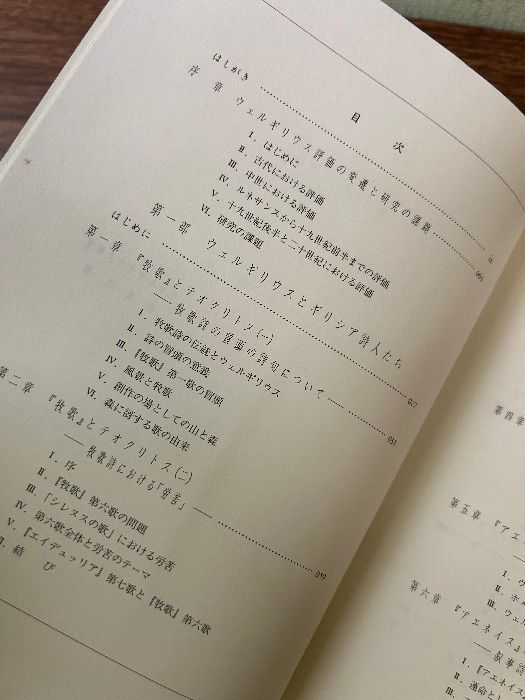 目次
はしがき ix
序章 ウェルギリウス評価の変遷と研究の課題 001
I. はじめに
II. 古代における評価
III. 中世における評価
IV. ルネサンスから十九世紀前半までの評価
V. 十九世紀後半と二十世紀における評価
VI. 研究の課題
第一部 ウェルギリウスとギリシア詩人たち
はじめに 027
第一章 『牧歌』とテオクリトス(一)
――牧歌詩の冒頭の詩句について―― 031
I. 牧歌詩の伝統とウェルギリウス
II. 詩の冒頭の意義
III. 『牧歌』第一歌の冒頭
IV. 風景と牧歌
V. 創作の場としての山と森
VI. 森に宿する歌の由来
第二章 『牧歌』とテオクリトス(二)
――牧歌詩における「労苦」―― 049
I. 序
II. 『牧歌』第六歌の問題
III. 「シレヌスの歌」における労苦
IV. 第六歌全体と労苦のテーマ
V. 『エイデュッリア』第七歌と『牧歌』第六歌
結び
第四章
第五章 『アエネ
I. ウ
II. ホメ
III. ウェル
第六章 『アエネイス』
――叙事詩
I. 『アエネ
II. 運命と